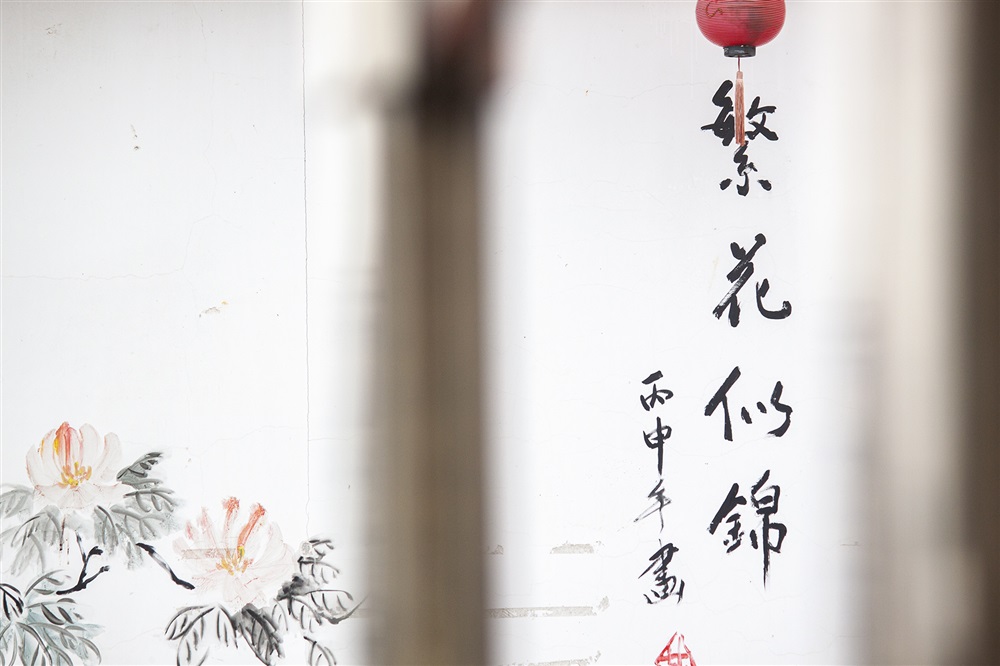 繁花似錦
丙申年畫